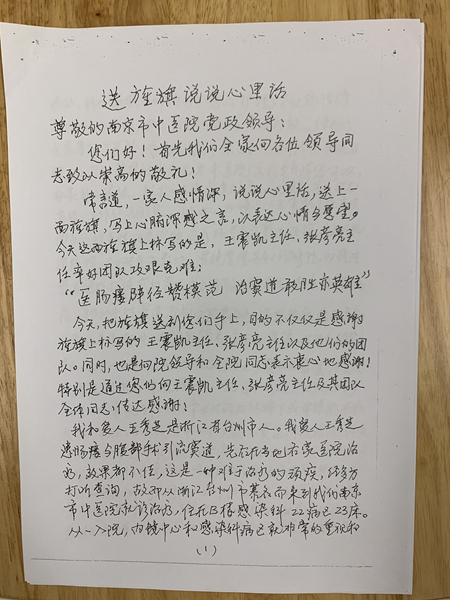 送旌旗说说心里话
尊敬的南京市中医院党政领导：
您们好！首先我们全家向各位领导同
志致以崇高的敬礼！
常言道，一家人感情深，说说心里话，送上一
面旌旗，写上心腑深感之言，以表达心情与愿望。
今天这面旌旗上标写的是，王震凯主任、张彦亮主
任率好团队攻艰克难；
“医肠瘘 模范 治窦道敢胜亦英雄”
今天，把旌旗送到您们手上，目的不仅仅是感谢
旌旗上标写的王震凯主任、张彦亮主任以及他们的团
队。同时，也是向院领导和全院同志表示衷心地感谢！
特别是通过您们向王震凯主任、张彦亮主任及其团队
全体同志传达感谢！
我和爱人王秀芝是浙江省台州市人。我爱人王秀芝
患肠瘘合腹部手术引流窦道，先在 地 医院治
疗，效果都不佳，这是一种难于治疗的顽疾，经多方
打听查询，故即从浙江台州市慕名而来到我们南京
市中医院就诊治疗，住在B楼感染科22病区23床。
从一入院，内镜中心和感染科病区就非常的重视和
（1）